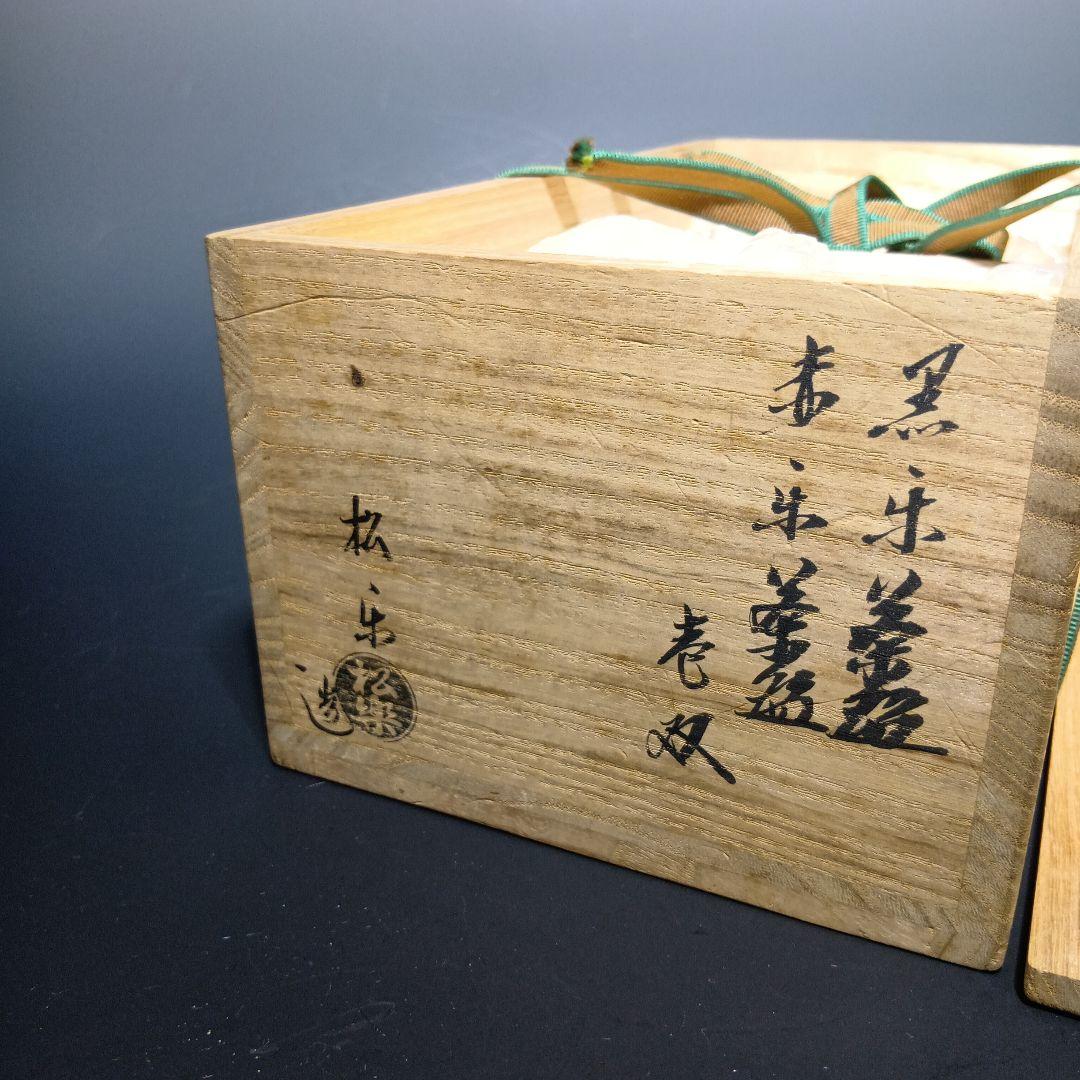 黒楽茶碗
赤楽茶碗
壱双
松楽造
松楽